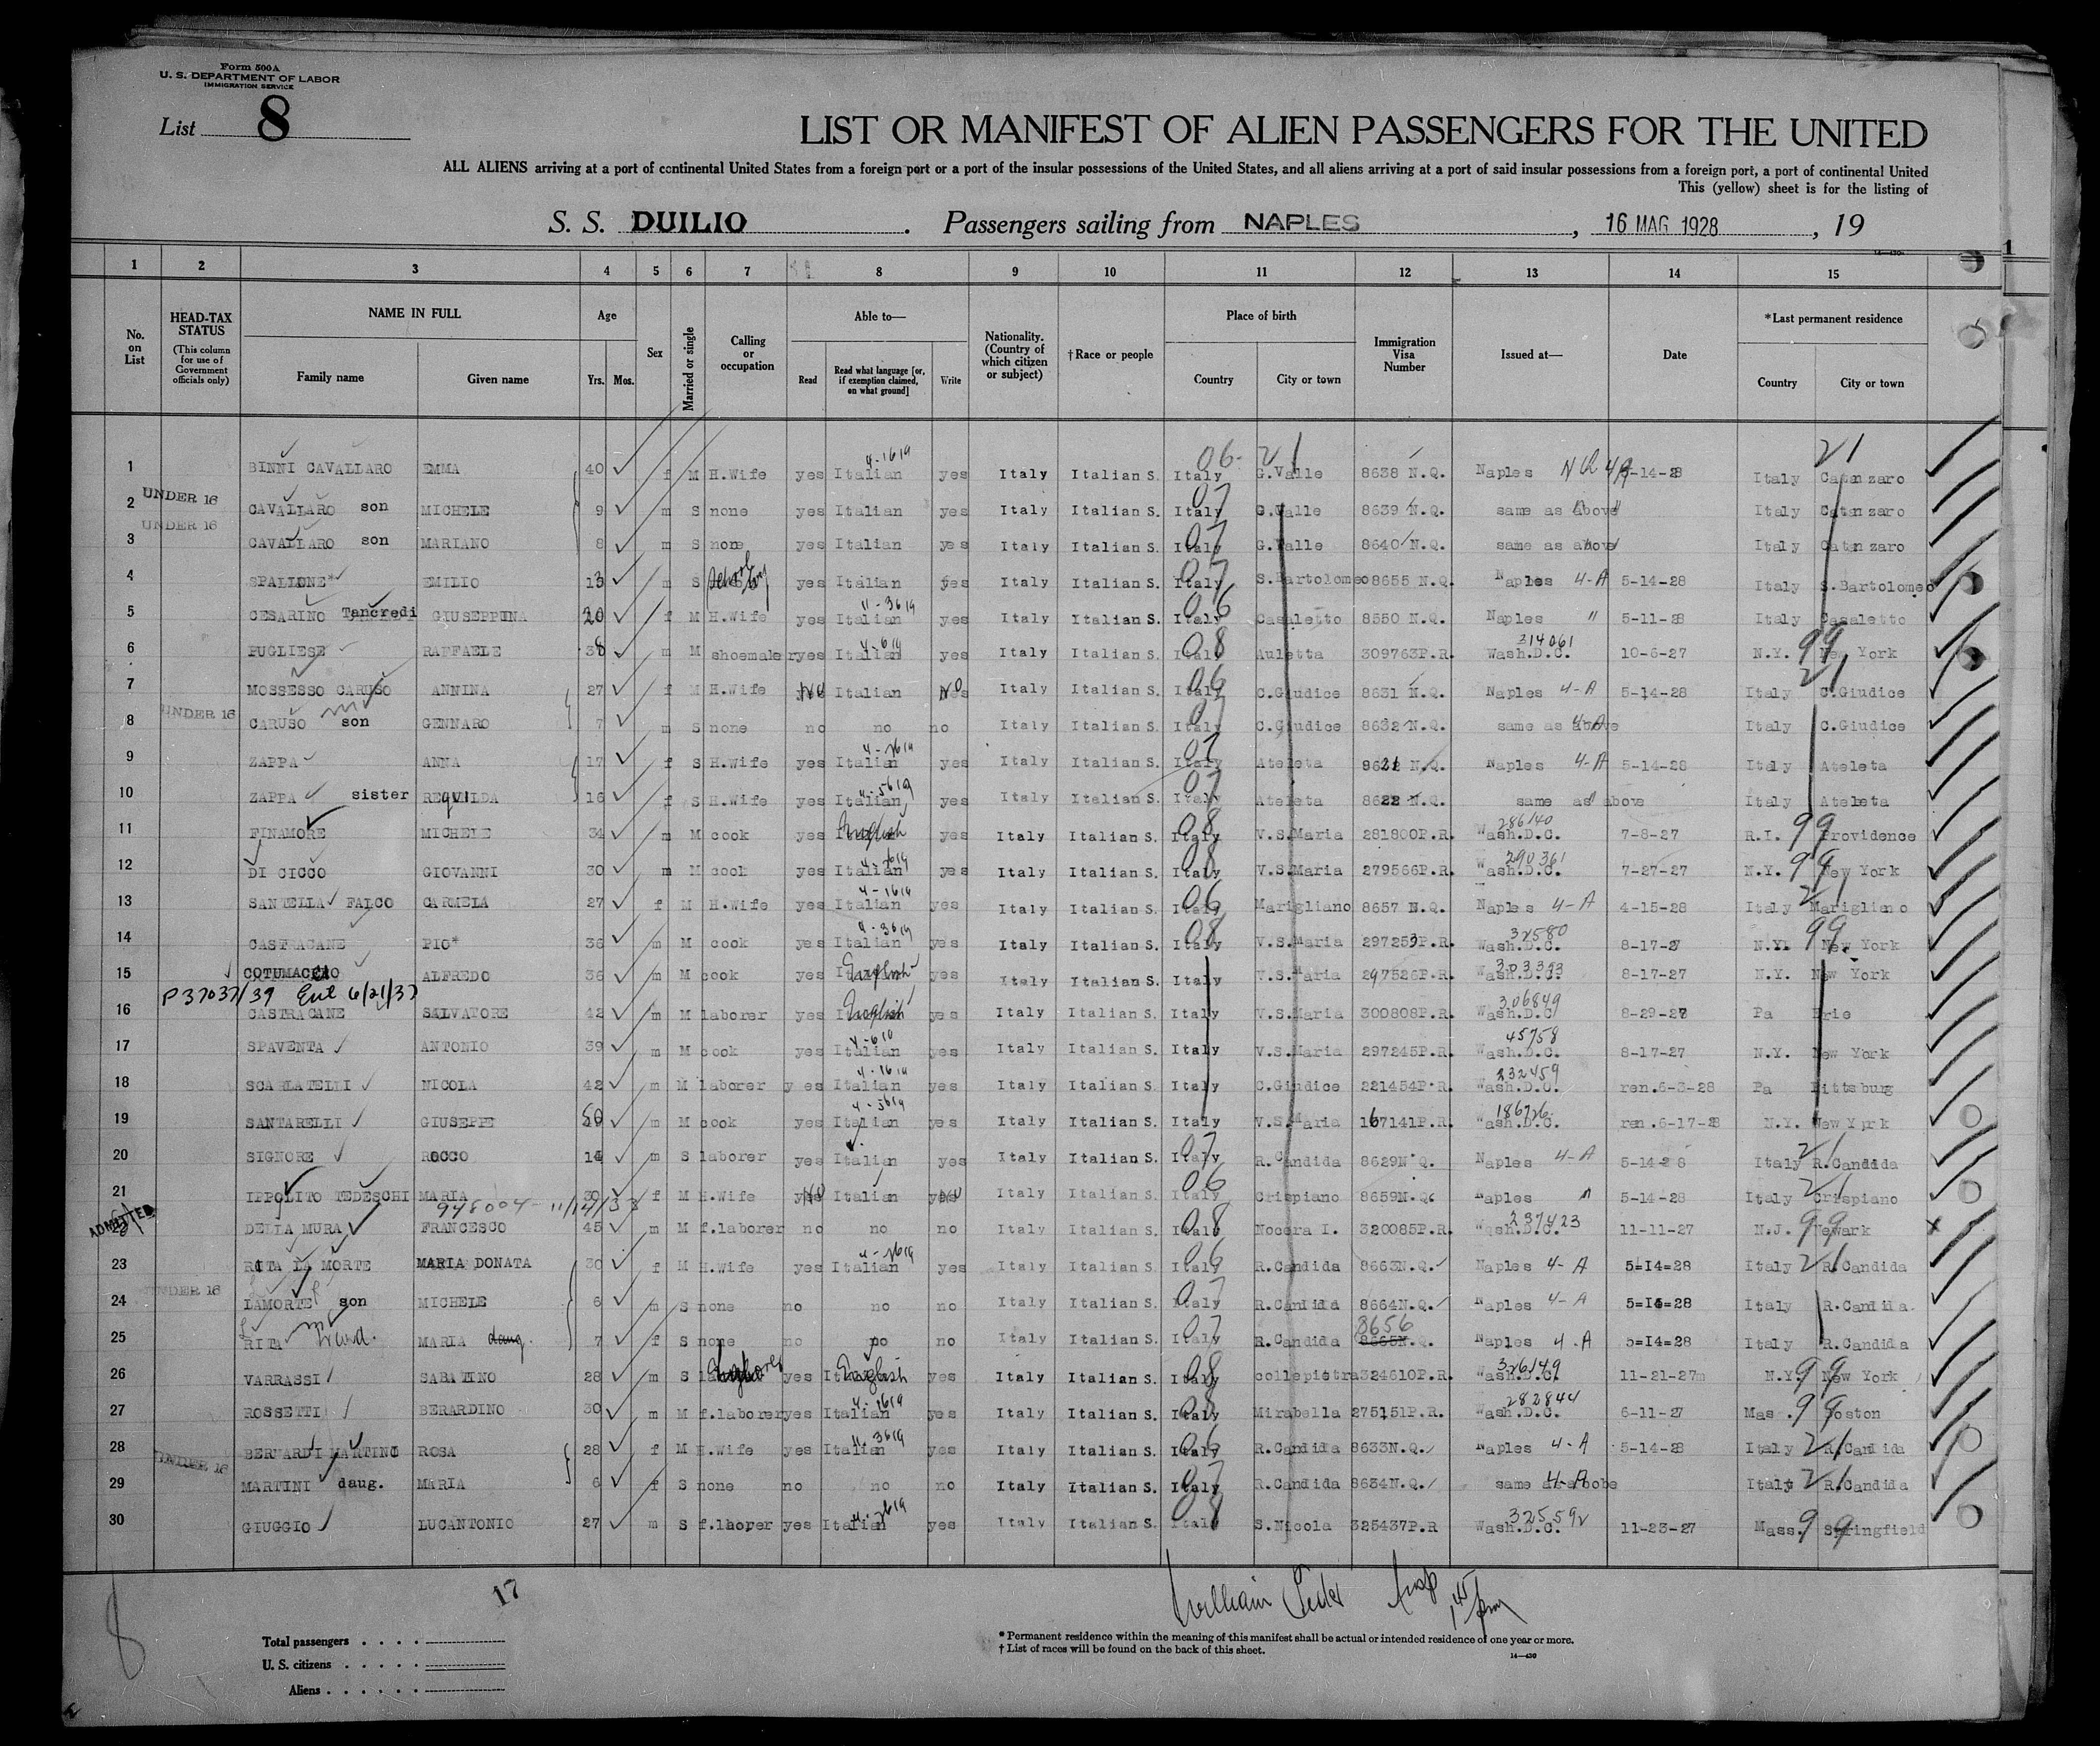 Form 500A
U. S. DEPARTMENT OF LABOR
IMMIGRATION SERVICE
List 8
LIST OR MANIFEST OF ALIEN PASSENGERS FOR THE UNITED
ALL ALIENS arriving at a port of continental United States from a foreign port or a port of the insular possessions of the United States, and all aliens arriving at a port of said insular possessions from a foreign port, a port of continental United
This (yellow) sheet is for the listing of
S. S. DUILIO. Passengers sailing from NAPLES, 16 MAG 1928, 19
1 2 3 4 5 6 7 8 9 10 11 12 13 14 15
No. on List
HEAD-TAX STATUS (This column for use of Government officials only)
NAME IN FULL Family name Given name
Age Yrs. Mos.
Sex
Married or single
Calling or occupation
Able to— Read Read what language [or, if exemption claimed, on what ground] Write
Nationality. (Country of which citizen or subject)
†Race or people
Place of birth Country City or town
Immigration Visa Number
Issued at—
Date
*Last permanent residence Country City or town
1 BINNI CAVALLARO EMMA 40 f M H.Wife yes Italian yes Italy Italian S. Italy G.Valle 8638 N.Q. Naples 5-14-28 Italy Catanzaro
2 UNDER 16 CAVALLARO son MICHELE 9 m S none yes Italian yes Italy Italian S. Italy G.Valle 8639 N.Q. same as above Italy Catanzaro
3 UNDER 16 CAVALLARO son MARIANO 8 m S none yes Italian yes Italy Italian S. Italy G.Valle 8640 N.Q. same as above Italy Catanzaro
4 SPALLONE* EMILIO 13 m S yes Italian yes Italy Italian S. Italy S.Bartolomeo 8655 N.Q. Naples 4-A 5-14-28 Italy S.Bartolomeo
5 CESARINO Tancredi GIUSEPPINA 20 f M H.Wife yes Italian yes Italy Italian S. Italy Casaletto 8550 N.Q. Naples " 5-11-28 Italy Casaletto
6 PUGLIESE RAFFAELE 38 m M shoemaker yes Italian yes Italy Italian S. Italy Auletta 309763P.R. Wash.D.C. 314061 10-6-27 N.Y. New York
7 MOSSESSO CARUSO ANNINA 27 f M H.Wife No Italian No Italy Italian S. Italy C.Giudice 8631 N.Q. Naples 4-A 5-14-28 Italy C.Giudice
8 UNDER 16 CARUSO son GENNARO 7 m S none no no no Italy Italian S. Italy C.Giudice 8632 N.Q. same as above Italy C.Giudice
9 ZAPPA ANNA 17 f S H.wife yes Italian yes Italy Italian S. Italy Ateleta 8621 N.Q. Naples 4-A 5-14-28 Italy Ateleta
10 ZAPPA sister REQUILDA 16 f S H.Wife yes Italian yes Italy Italian S. Italy Ateleta 8622 N.Q. same as above Italy Ateleta
11 FINAMORE MICHELE 34 m M cook yes English yes Italy Italian S. Italy V.S.Maria 281800P.R. Wash.D.C. 286140 7-8-27 R.I. Providence
12 DI CICCO GIOVANNI 30 m M cook yes Italian yes Italy Italian S. Italy V.S.Maria 279566P.R. Wash.D.C. 290361 7-27-27 N.Y. New York
13 SANTELLA FALCO CARMELA 27 f M H.Wife yes Italian yes Italy Italian S. Italy Marigliano 8657 N.Q. Naples 4-A 4-15-28 Italy Marigliano
14 CASTRACANE PIO* 36 m M cook yes Italian yes Italy Italian S. Italy V.S.Maria 297253P.R. Wash.D.C. 32580 8-17-27 N.Y. New York
15 COTUMACCIO ALFREDO 36 m M cook yes English yes Italy Italian S. Italy V.S.Maria 297526P.R. Wash.D.C. 8-17-27 N.Y. New York
P37037/39 Ext 6/21/37
16 CASTRACANE SALVATORE 42 m M laborer yes English yes Italy Italian S. Italy V.S.Maria 300808P.R. Wash.D.C. 306849 8-29-27 Pa Erie
17 SPAVENTA ANTONIO 39 m M cook yes Italian yes Italy Italian S. Italy V.S.Maria 297245P.R. Wash.D.C. 45758 8-17-27 N.Y. New York
18 SCARLATELLI NICOLA 42 m M laborer yes Italian yes Italy Italian S. Italy C.Giudice 221454P.R. Wash.D.C. 232459 ren.6-3-28 Pa Pittsburg
19 SANTARELLI GIUSEPPE 50 m M cook yes Italian yes Italy Italian S. Italy V.S.Maria 167141P.R. Wash.D.C. ren.6-17-28 N.Y. New York
20 SIGNORE ROCCO 14 m S laborer yes Italian yes Italy Italian S. Italy R.Candida 8629N.Q. Naples 4-A 5-14-28 Italy R.Candida
21 IPPOLITO TEDESCHI MARIA 30 f M H.Wife No Italian No Italy Italian S. Italy Crispiano 8659N.Q. Naples " 5-14-28 Italy Crispiano
948004-11/14/38
ADMITTED 22 DELLA MURA FRANCESCO 45 m M f.laborer no no no Italy Italian S. Italy Nocera I. 320085P.R. Wash.D.C. 11-11-27 N.J. Newark
23 RITA LA MORTE MARIA DONATA 30 f M H.Wife yes Italian yes Italy Italian S. Italy R.Candida 8663N.Q. Naples 4-A 5=14=28 Italy R.Candida
24 UNDER 16 LAMORTE son MICHELE 6 m S none no no no Italy Italian S. Italy R.Candida 8664N.Q. Naples 4-A 5=14=28 Italy R.Candida
25 RITA MARIA daug. 7 f S none no no no Italy Italian S. Italy R.Candida 8656 8665N.Q. Naples 4-A 5=14=28 Italy R.Candida
26 VARRASSI SABATINO 28 m S laborer yes English yes Italy Italian S. Italy collepietra 324610P.R. Wash.D.C. 326149 11-21-27 N.Y. New York
27 ROSSETTI BERARDINO 30 m M f.laborer yes Italian yes Italy Italian S. Italy Mirabella 275151P.R. Wash.D.C. 282844 6-11-27 Mas. Boston
28 BERNARDI MARTINO ROSA 28 f M H.Wife yes Italian yes Italy Italian S. Italy R.Candida 8633N.Q. Naples 4-A 5-14-28 Italy R.Candida
29 UNDER 16 MARTINI daug. MARIA 6 f S none no no no Italy Italian S. Italy R.Candida 8634N.Q. same as abobe 4-A Italy R.Candida
30 GIUGGIO LUCANTONIO 27 m S f.laorer yes Italian yes Italy Italian S. Italy S.Nicola 325437P.R Wash.D.C. 11-23-27 Mass. Springfield
17
8
William Insp 1 45 pm
Total passengers
U. S. citizens
Aliens
* Permanent residence within the meaning of this manifest shall be actual or intended residence of one year or more.
† List of races will be found on the back of this sheet.
14—430